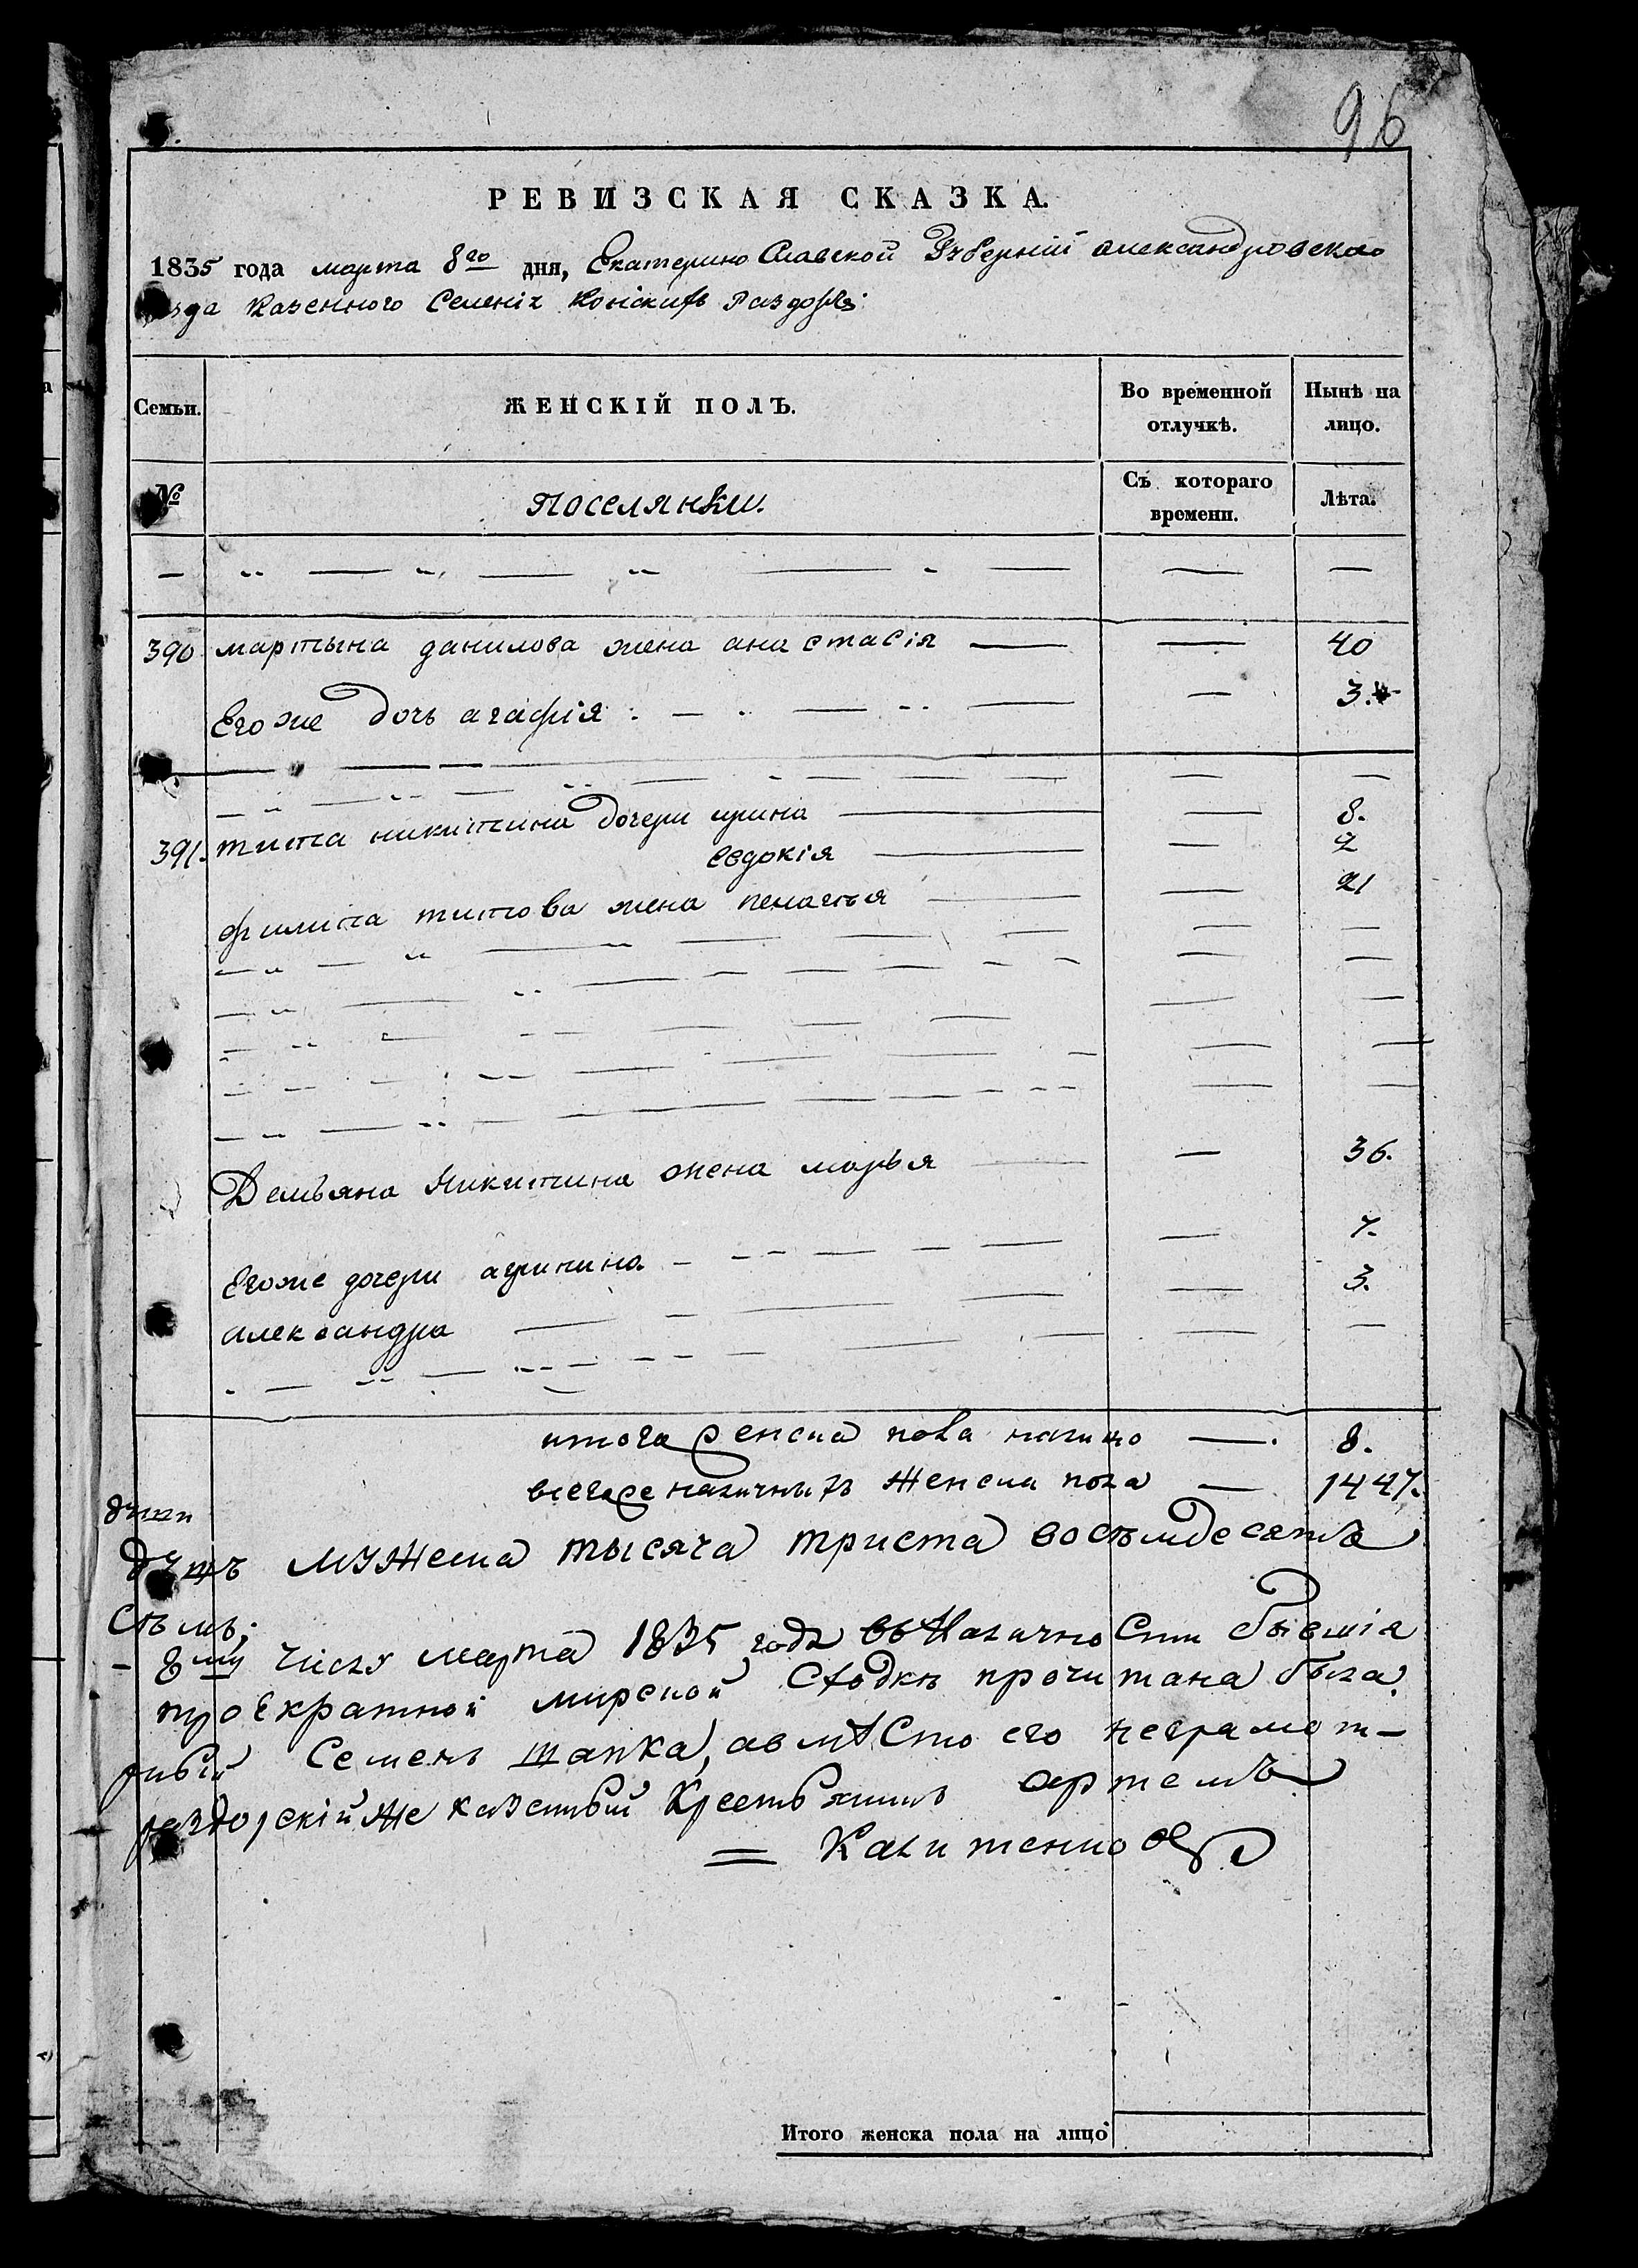 96
РЕВИЗСКАЯ СКАЗКА.
1835 года марта 8го дня, Екатерино Славской Губерніи александровскаго
езда Казенного Селенія Конскихъ Раздоръ:
Семьи. ЖЕНСКІЙ ПОЛЪ. Во временной отлучкѣ. Нынѣ на лицо.
№ поселянки. Съ котораго времени. Лѣта.
390 мартына данилова жена ана стасія — — 40
Егоже дочь агафія — — 3.
391. тита никитина дочери ирина — — 8.
Евдокія — — 2
филипа титова жена пелагея — — 21
Демьяна Никитина жена марья — — 36.
Егоже дочери агрипина — — 7.
александра — — 3.
итога женска пола налицо — 8.
всегоже наличныхъ женска пола — 1447.
души
душъ мужеска тысяча триста восъмдесятъ
съмъ.
- 8му числу марта 1835 года въ Наличности бывшія
троекратной мирской сходкѣ прочитана была
Семенъ шапка, авмѣсто его неграмот-
раздорскій же казенный Крестьянинъ артемъ
= Калитенко
Итого женска пола на лицо